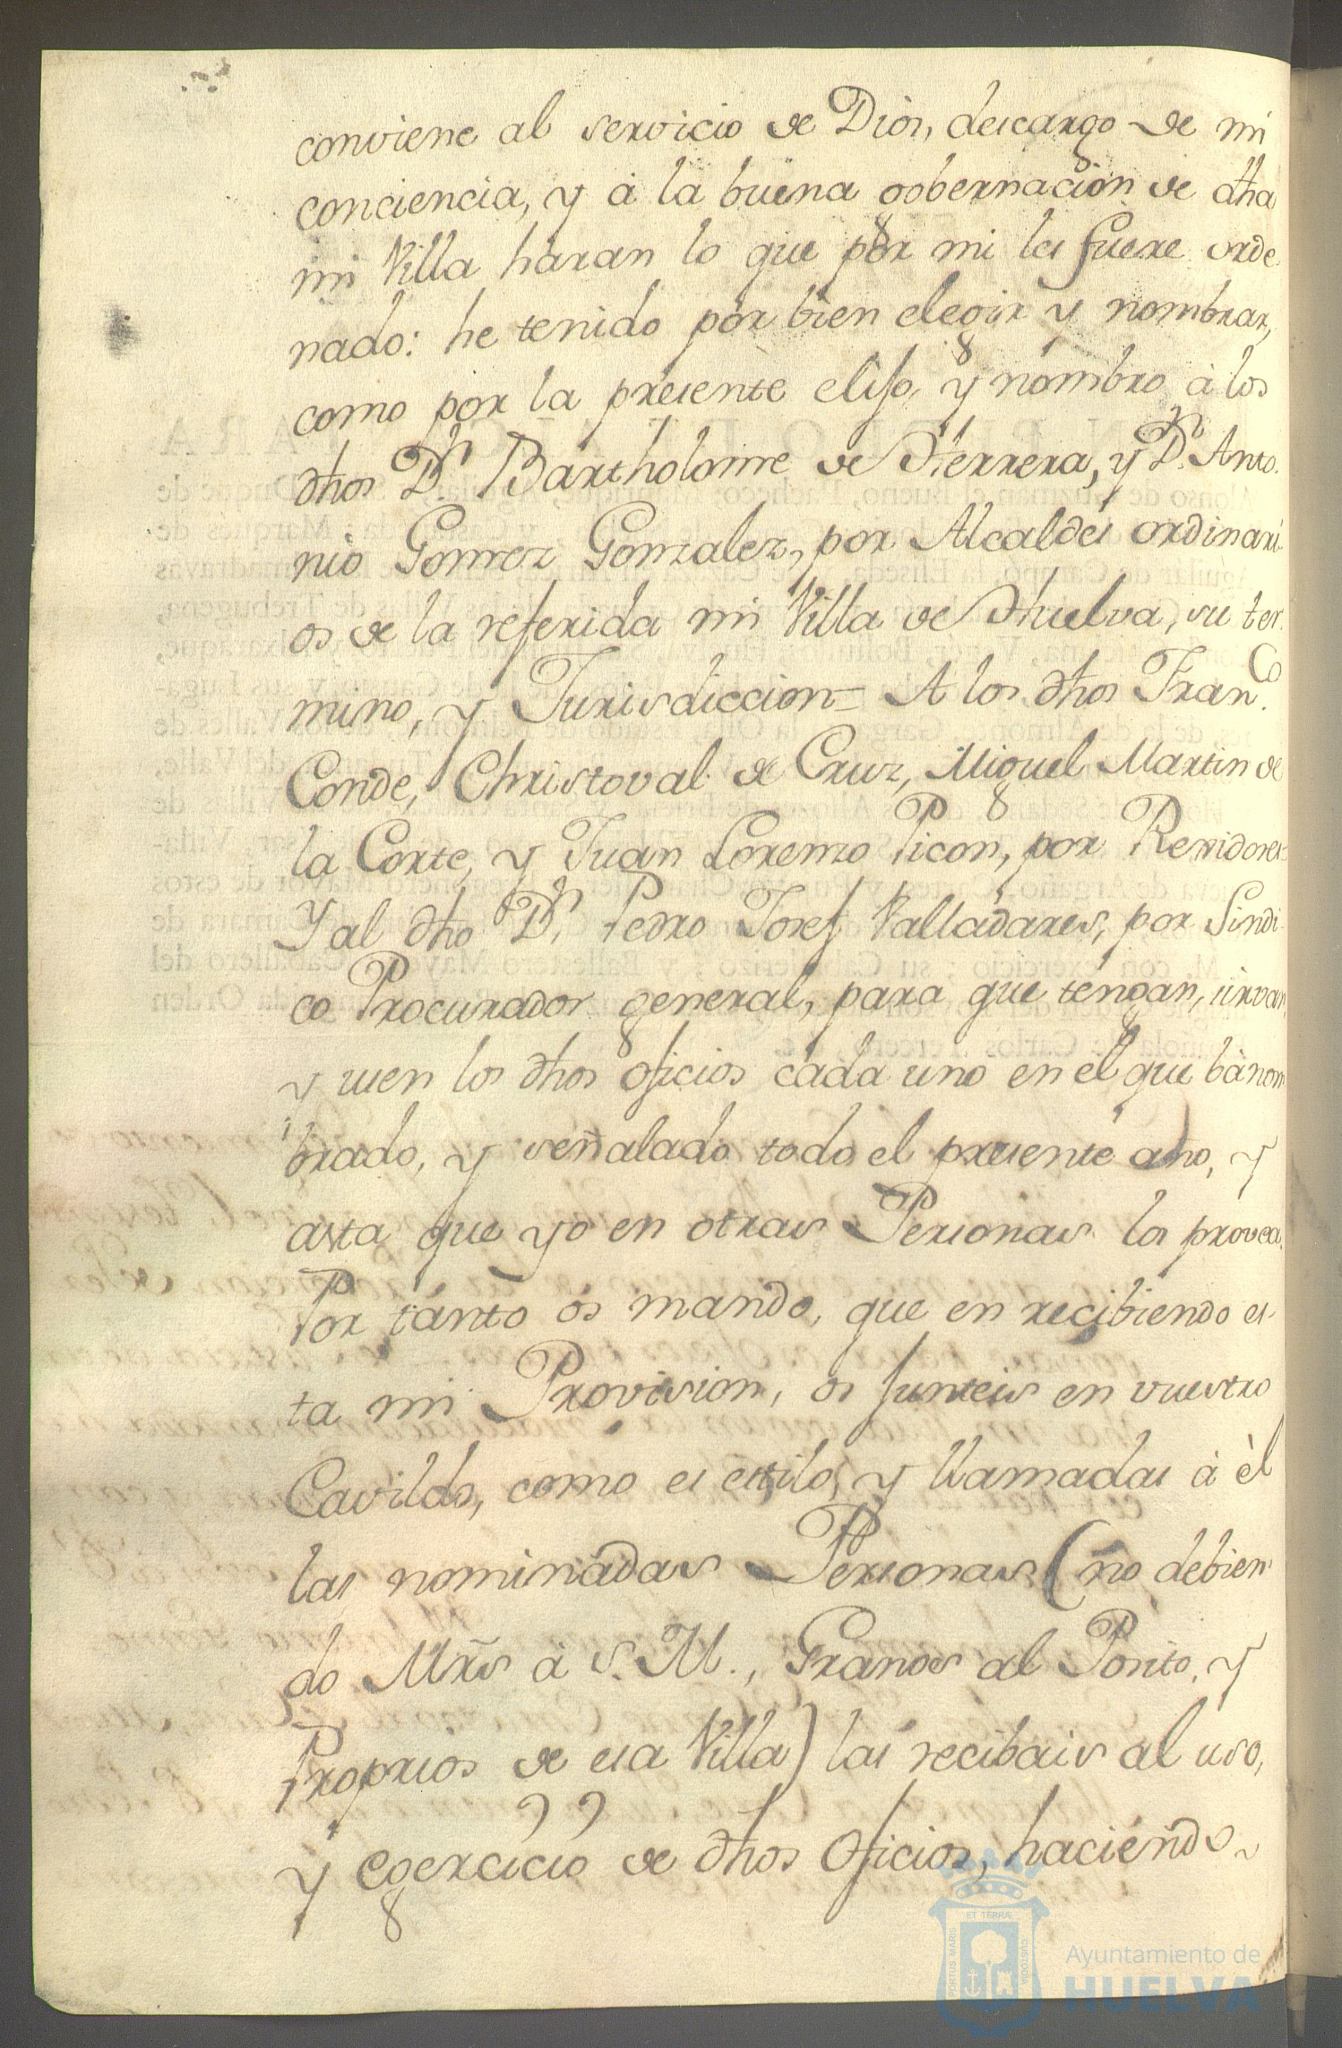 conviene al servicio de Dios, descargo de mi
conciencia, y à la buena gobernacion de dha
mi Villa haran lo que por mi les fuere orde
nado: he tenido por bien elegir y nombrar,
como por la presente elijo, y nombro à los
dhos Dn. Bartholome de Herrera, y Dn. Anto
nio Gomez Gonzalez, por Alcaldes ordinari
os de la referida mi Villa de Huelva, su ter
mino, y Jurisdiccion= A los dhos Franco.
Conde, Christoval de Cruz, Miguel Martin de
la Corte, y Juan Lorenzo Picon, por Rexidores=
Y al dho Dn. Pedro Josef Valladares, por Sindi
co Procurador general, para que tengan, sirvan,
y usen los dhos oficios cada uno en el que bà nom
brado, y señalado todo el presente año, y
asta que yo en otras Personas los provea.
Por tanto os mando, que en recibiendo es
ta mi Provision, os Junteis en vuestro
Cavildo, como es estilo, y llamadas à èl
las nominadas Personas (no debien
do Mrs̃ à S. M., Granos al Posito, y
Proprios de esa Villa) las recibais al uso,
y egercicio de dhos Oficios, haciendo
PORTUS MARIS ET TERRÆ CUSTODIA
Ayuntamiento de
HUELVA